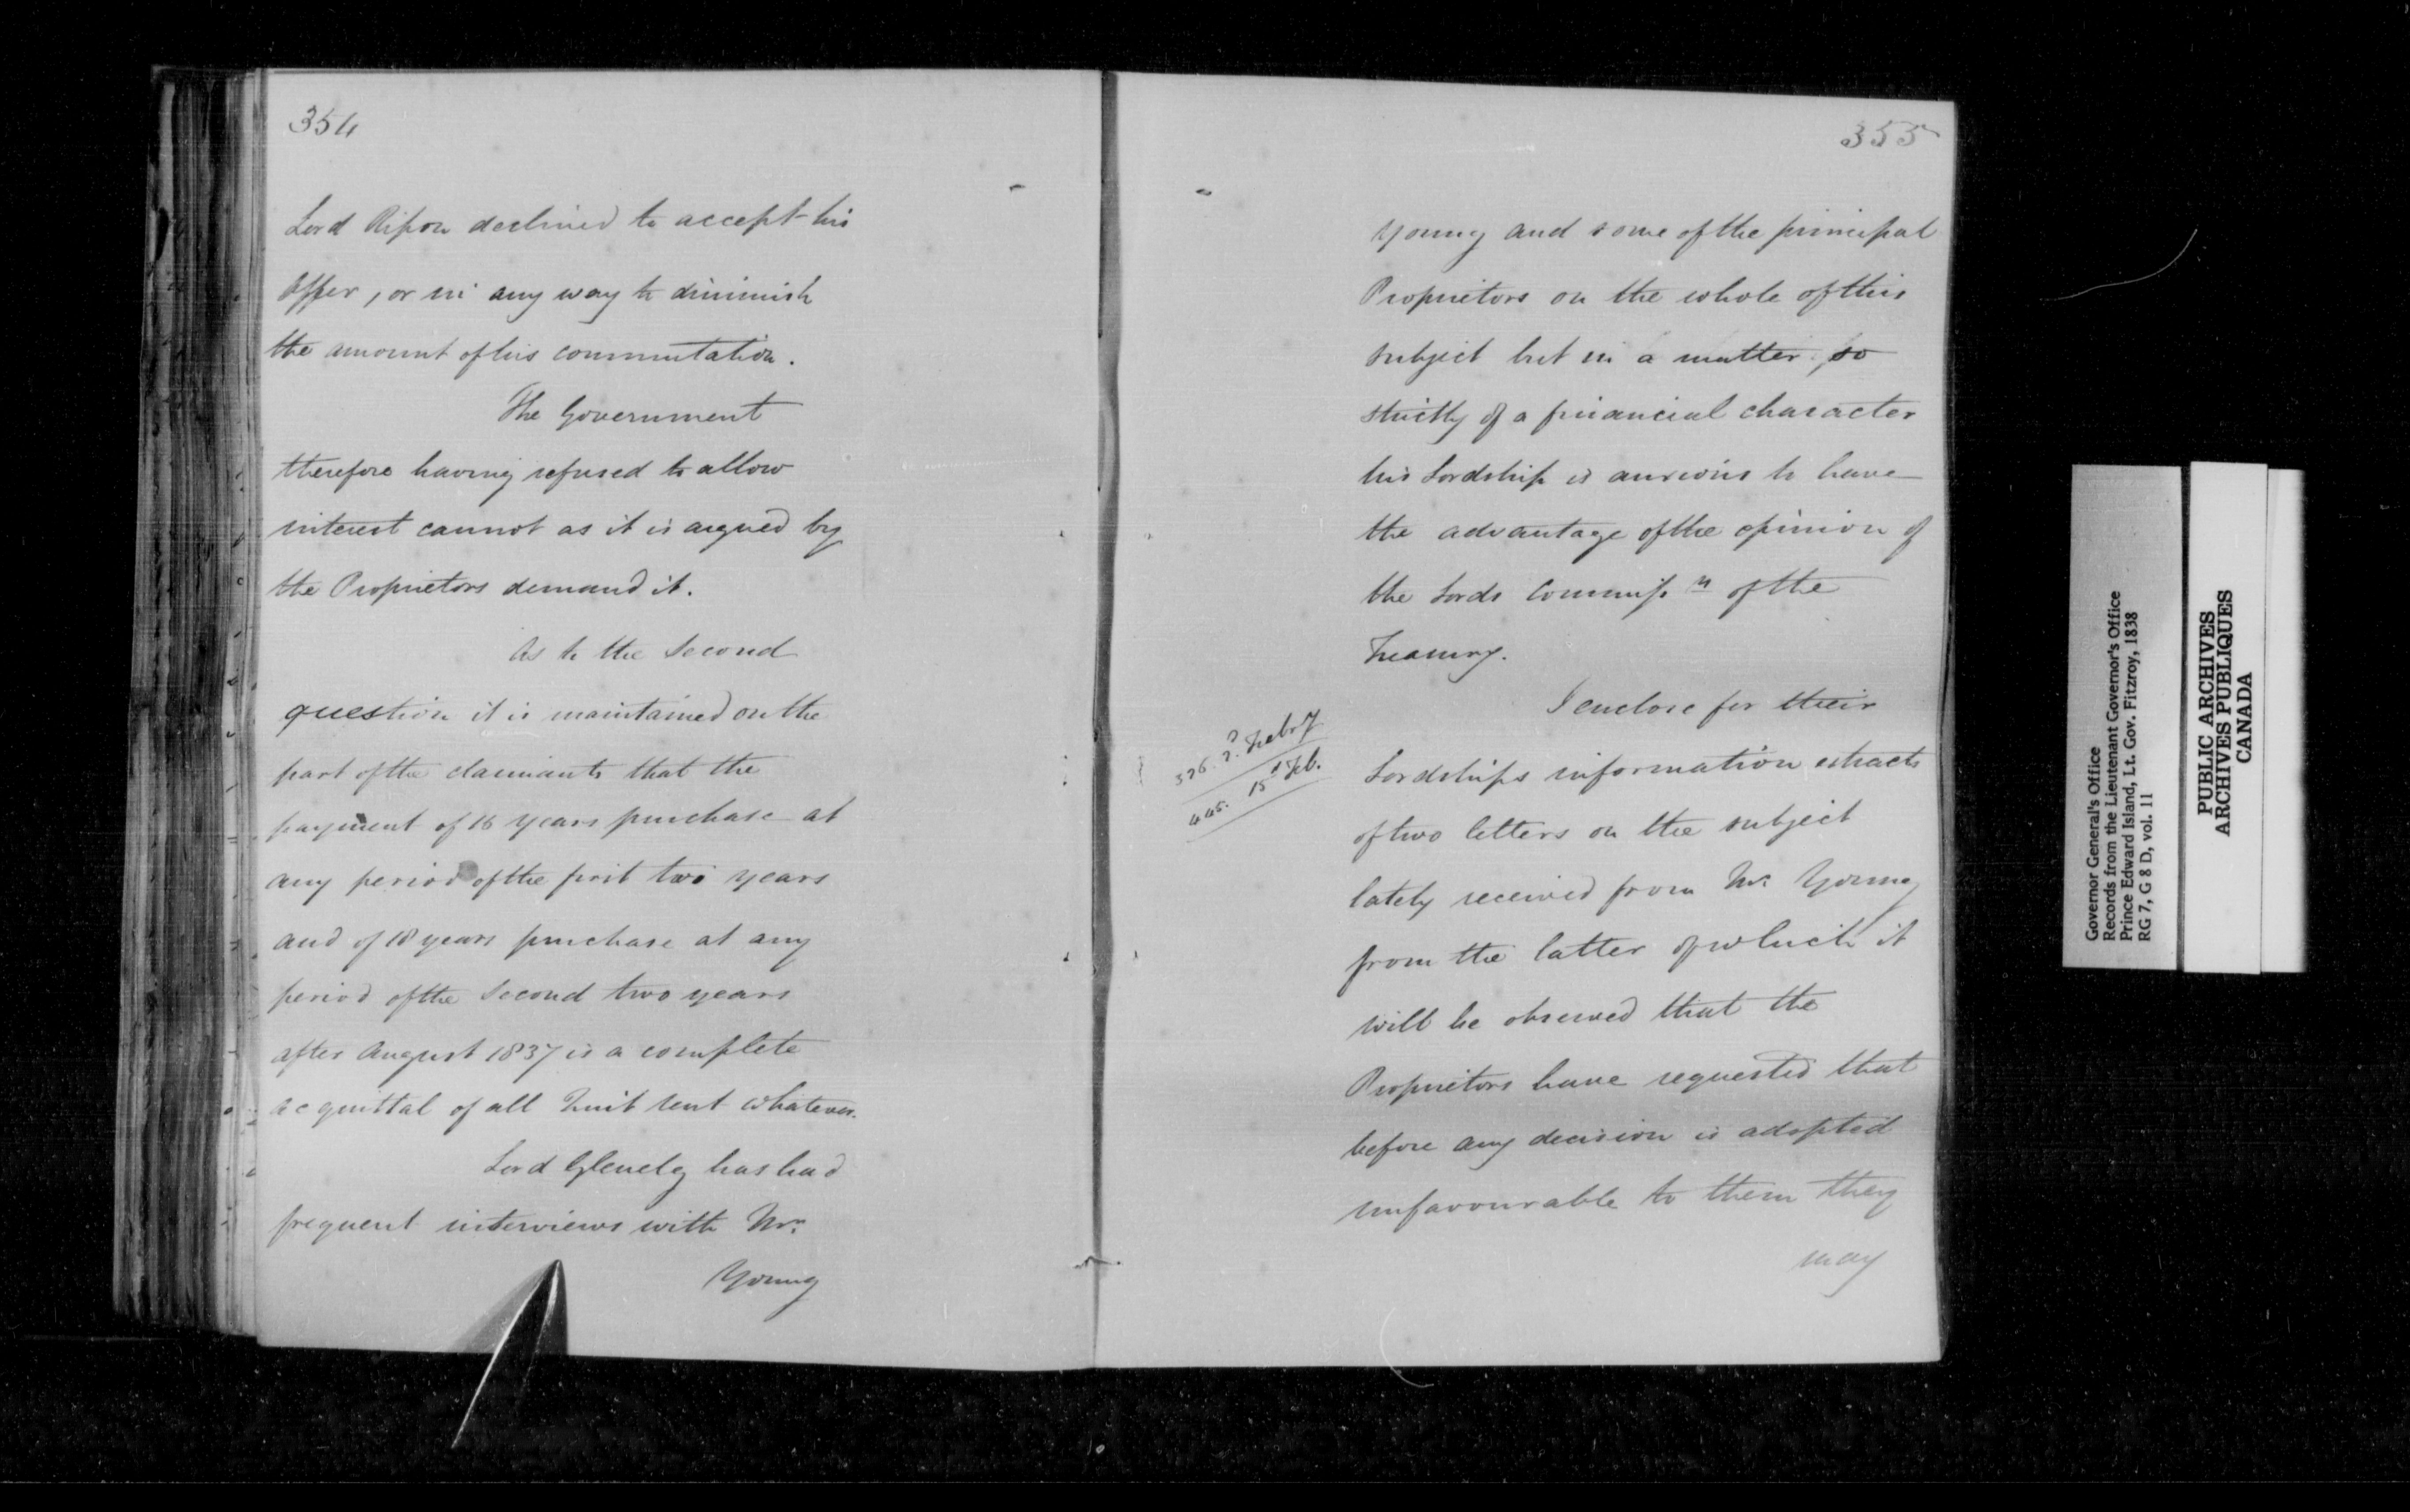 354
Lord Ripon declined to accept his
offer, or in any way to diminish
the amount of his commutation.
The Government
therefore having refused to allow
interest cannot as it is argued by
the Proprietors demand it.
As to the Second
question it is maintained on the
part of the claimants that the
payment of 16 years purchase at
any period of the first two years
and of 18 years purchase at any
period of the second two years
after August 1837 is a complete
acquittal of all Quit rent whatever.
Lord Glenelg has had
frequent interviews with Mr.
Young
355
Young and some of the principal
Proprietors on the whole of this
subject but in a matter so
strictly of a financial character
his Lordship is anxious to have
the advantage of the opinion of
the Lords Commiss rs of the
Treasury.
I enclose for their
Lordships information extracts
of two letters on the subject
lately received from Mr. Young
from the latter of which it
will be observed that the
Proprietors have requested that
before any decision is adopted
unfavourable to them they
may
Febry
445. 15 Feb.
Governor General's Office
Records from the Lieutenant Governor's Office
Prince Edward Island, Lt. Gov. Fitzroy, 1838
RG 7, G 8 D, vol. 11
PUBLIC ARCHIVES
ARCHIVES PUBLIQUES
CANADA